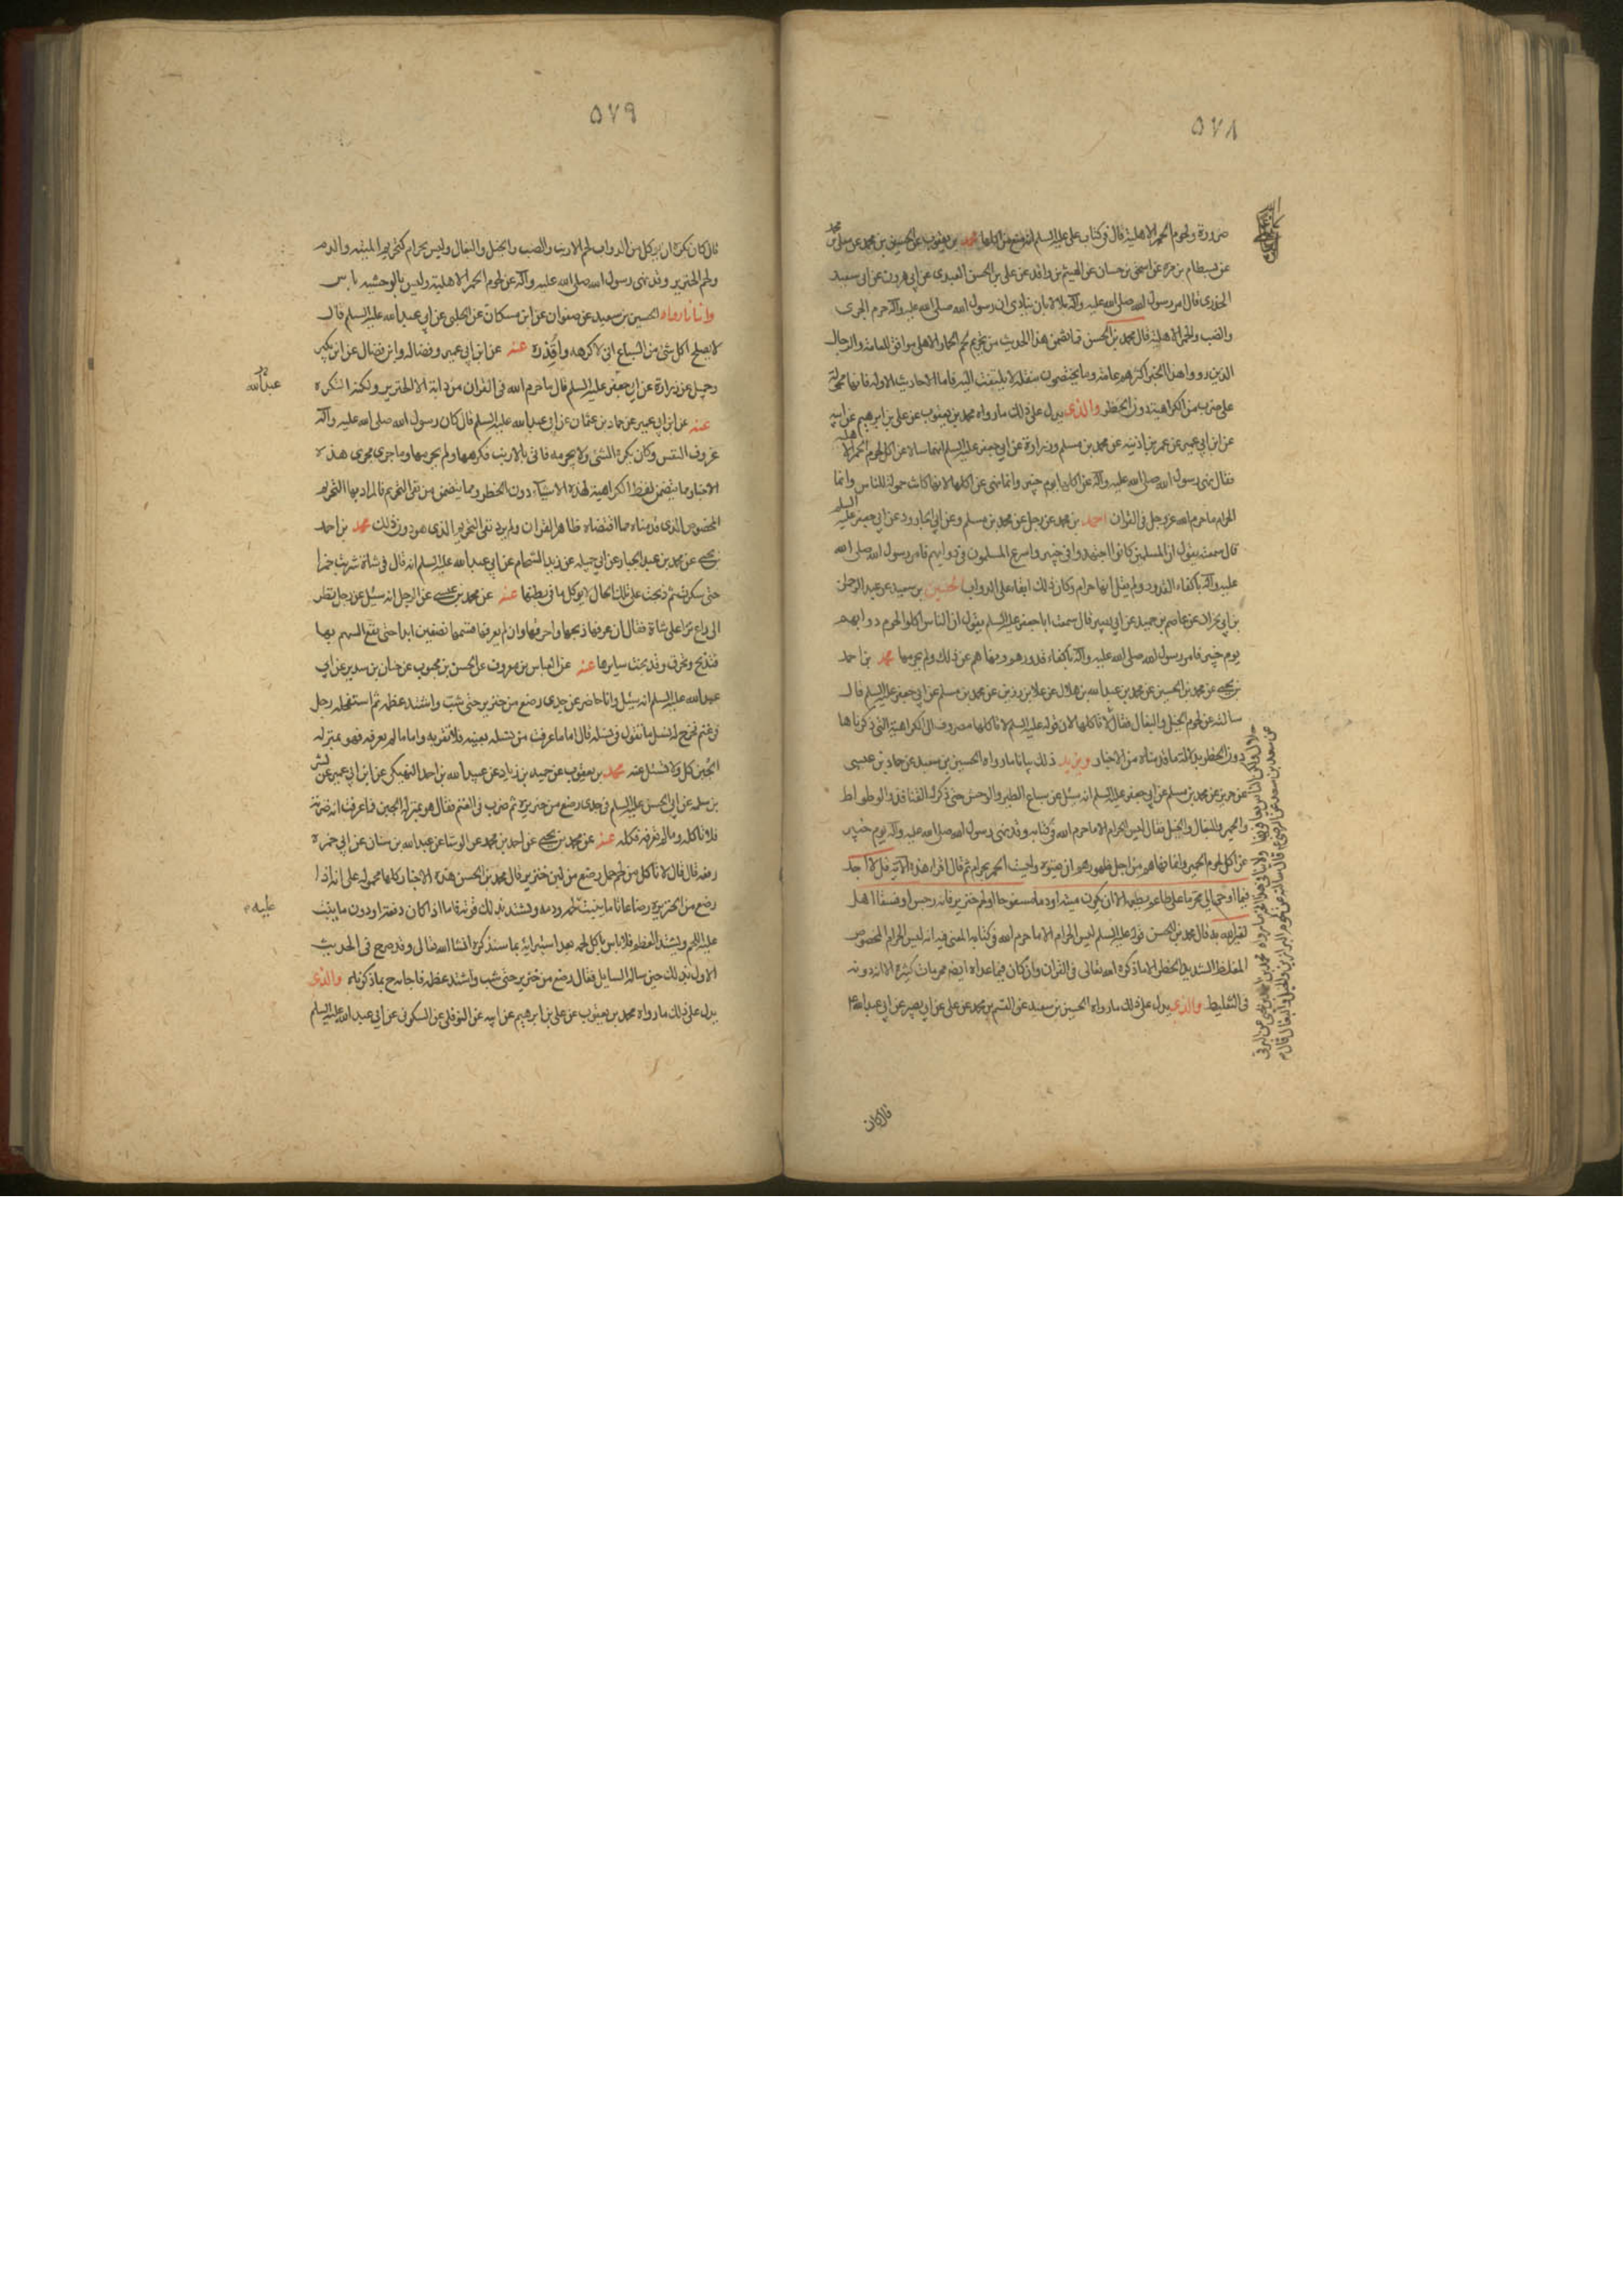 ٥٧٨
ضرورة ولحوم الحمر الاهلية قال في كتاب علي عليه السلم انه منع من اكلها محمد بن يعقوب عن الحسين بن محمد عن معلى بن محمد
عن بسطام بن مرة عن اسحق بن حسان عن الهيثم بن واقد عن علي بن الحسن العبدي عن ابي هرون عن ابي سعيد
الخدري قال امر رسول الله صلى الله عليه وآله بلالا بان ينادي ان رسول الله صلى الله عليه وآله حرم الجري
والضب والحمر الاهلية قال محمد بن الحسن فما تضمن هذا الحديث من تحريم لحم الحمار الاهلي موافق للعامة والرجال
الذين رووا هذا الخبر اكثرهم عامة وما يختصون بنقله لا يلتفت اليه فاما الاحاديث الاولة فانها محمولة
على ضرب من الكراهية دون الحظر والذي يدل على ذلك ما رواه محمد بن يعقوب عن علي بن ابرهيم عن ابيه
عن ابن ابي عمير عن عمر بن اذينه عن محمد بن مسلم وزرارة عن ابي جعفر عليه السلم انهما سالاه عن اكل لحوم الحمر الاهلية
فقال نهى رسول الله صلى الله عليه وآله عن اكلها يوم خيبر وانما نهى عن اكلها لانها كانت حمولة للناس وانما
الحرام ما حرم الله عز وجل في القران احمد بن محمد عن رجل عن محمد بن مسلم وعن ابي الجارود عن ابي جعفر عليه السلم
قال سمعته يقول ان المسلمين كانوا اجتهدوا في خيبر واسرع المسلمون في دوابهم فامر رسول الله صلى الله
عليه وآله باكفاء القدور ولم يقل انها حرام وكان ذلك ابقاء على الدواب الحسين بن سعيد عن عبد الرحمن
بن ابي نجران عن عاصم بن حميد عن ابي بصير قال سمعت ابا جعفر عليه السلم يقول ان الناس اكلوا لحوم دوابهم
يوم خيبر فامر رسول الله صلى الله عليه وآله باكفاء قدورهم ونهاهم عن ذلك ولم يحرمها محمد بن احمد
بن يحيى عن محمد بن الحسين عن محمد بن عبد الله بن هلال عن علا بن رزين عن محمد بن مسلم عن ابي جعفر عليه السلم قال
سالته عن لحوم الخيل والبغال فقال لا تاكلها لان قوله عليه السلم لا تاكلها مصروف الى الكراهية التي ذكرناها
دون الحظر بدلالة ما قدمناه من الاخبار ويزيد ذلك بيانا ما رواه الحسين بن سعيد عن حماد بن عيسى
عن حريز عن محمد بن مسلم عن ابي جعفر عليه السلم انه سئل عن سباع الطير والوحش حتى ذكر له القنافذ والوطواط
والحمير والبغال والخيل فقال ليس الحرام الا ما حرم الله في كتابه وقد نهى رسول الله صلى الله عليه وآله يوم خيبر
عن اكل لحوم الحمير وانما نهاهم من اجل ظهورهم ان يفنوه وليست الحمر بحرام ثم قال اقرأ هذه الآية قل لا اجد
فيما اوحي الي محرما على طاعم يطعمه الا ان يكون ميتة او دما مسفوحا او لحم خنزير فانه رجس او فسقا اهل
لغير الله به قال محمد بن الحسن قوله عليه السلم ليس الحرام الا ما حرم الله في كتابه المعنى فيه انه ليس الحرام المخصوص
المغلظ الشديد الحظر الا ما ذكره الله تعالى في القران وان كان فيما عداه ايضا محرمات كثيرة الا انه دونه
في التغليظ والذي يدل على ذلك ما رواه الحسين بن سعيد عن القسم بن محمد عن علي عن ابي بصير عن ابي عبد الله ع
قال كان
٥٧٩
قال كان يكره ان يؤكل من الدواب لحم الارنب والضب والخيل والبغال وليس بحرام كتحريم الميتة والدم
ولحم الخنزير وقد نهى رسول الله صلى الله عليه وآله عن لحوم الحمر الاهلية وليس بالوحشية باس
واما ما رواه الحسين بن سعيد عن صفوان عن ابن مسكان عن الحلبي عن ابي عبد الله عليه السلم قال
لا يصلح اكل شئ من السباع اني لاكرهه واقذره عنه عن ابن ابي عمير وفضالة وابن فضال عن ابن بكير
وجميل عن زرارة عن ابي جعفر عليه السلم قال ما حرم الله في القران من دابة الا الخنزير ولكنه النكره
عنه عن ابن ابي عمير عن حماد بن عثمان عن ابي عبد الله عليه السلم قال كان رسول الله صلى الله عليه وآله
عزوف النفس وكان يكره الشئ ولا يحرمه فاتي بالارنب فكرهها ولم يحرمها وما جرى مجرى هذه
الاخبار مما يتضمن لفظ الكراهية لهذه الاشياء دون الحظر ومما يتضمن من نفي التحريم فالمراد بها التحريم
المخصوص الذي قدمناه مما اقتضاه ظاهر القران ولم يرد نفي التحريم الذي هو دون ذلك محمد بن احمد
بن يحيى عن محمد بن عبد الجبار عن ابي جميله عن زيد الشحام عن ابي عبد الله عليه السلم انه قال في شاة شربت خمرا
حتى سكرت ثم ذبحت على تلك الحال لا يوكل ما في بطنها عنه عن محمد بن عيسى عن الرجل انه سئل عن رجل نظر
الى راع نزا على شاة فقال ان عرفها ذبحها واحرقها وان لم يعرفها قسمها نصفين ابدا حتى يقع السهم بها
فتذبح وتحرق وقد نجت سايرها عنه عن العباس بن معروف عن الحسن بن محبوب عن حنان بن سدير عن ابي
عبد الله عليه السلم انه سئل وانا حاضر عن جدي رضع من خنزير حتى شب واشتد عظمه ثم استفحله رجل
في غنم فخرج له نسل ما تقول في نسله قال اما ما عرفت من نسله بعينه فلا تقربه واما ما لم تعرفه فهو بمنزلة
الجبن كل ولا تسئل عنه محمد بن يعقوب عن حميد بن زياد عن عبيد الله بن احمد النهيكي عن ابن ابي عمير عن بشر
بن مسلمه عن ابي الحسن عليه السلم في جدي رضع من خنزيرة ثم ضرب في الغنم فقال هو بمنزلة الجبن فما عرفت انه ضربه
فلا تاكله وما لم تعرفه فكله عنه عن محمد بن يحيى عن احمد بن محمد عن الوشا عن عبد الله بن سنان عن ابي حمزة
رفعه قال قال لا تاكل من لحم حمل رضع من لبن خنزير قال محمد بن الحسن هذه الاخبار كلها محمولة على انه اذا
رضع من الخنزيرة رضاعا تاما ينبت لحمه ودمه وتشتد بذلك قوته فاما اذا كان دفعة او دون ما ينبت
عليه اللحم ويشتد العظم فلا باس باكل لحمه بعد استبرائه بما سنذكره انشا الله تعالى وقد صرح في الحديث
الاول بذلك حين ساله السايل فقال رضع من خنزير حتى شب واشتد عظمه فاجابه ح بما ذكرناه والذي
يدل على ذلك ما رواه محمد بن يعقوب عن علي بن ابرهيم عن ابيه عن النوفلي عن السكوني عن ابي عبد الله عليه السلم
عبد الله
عليه